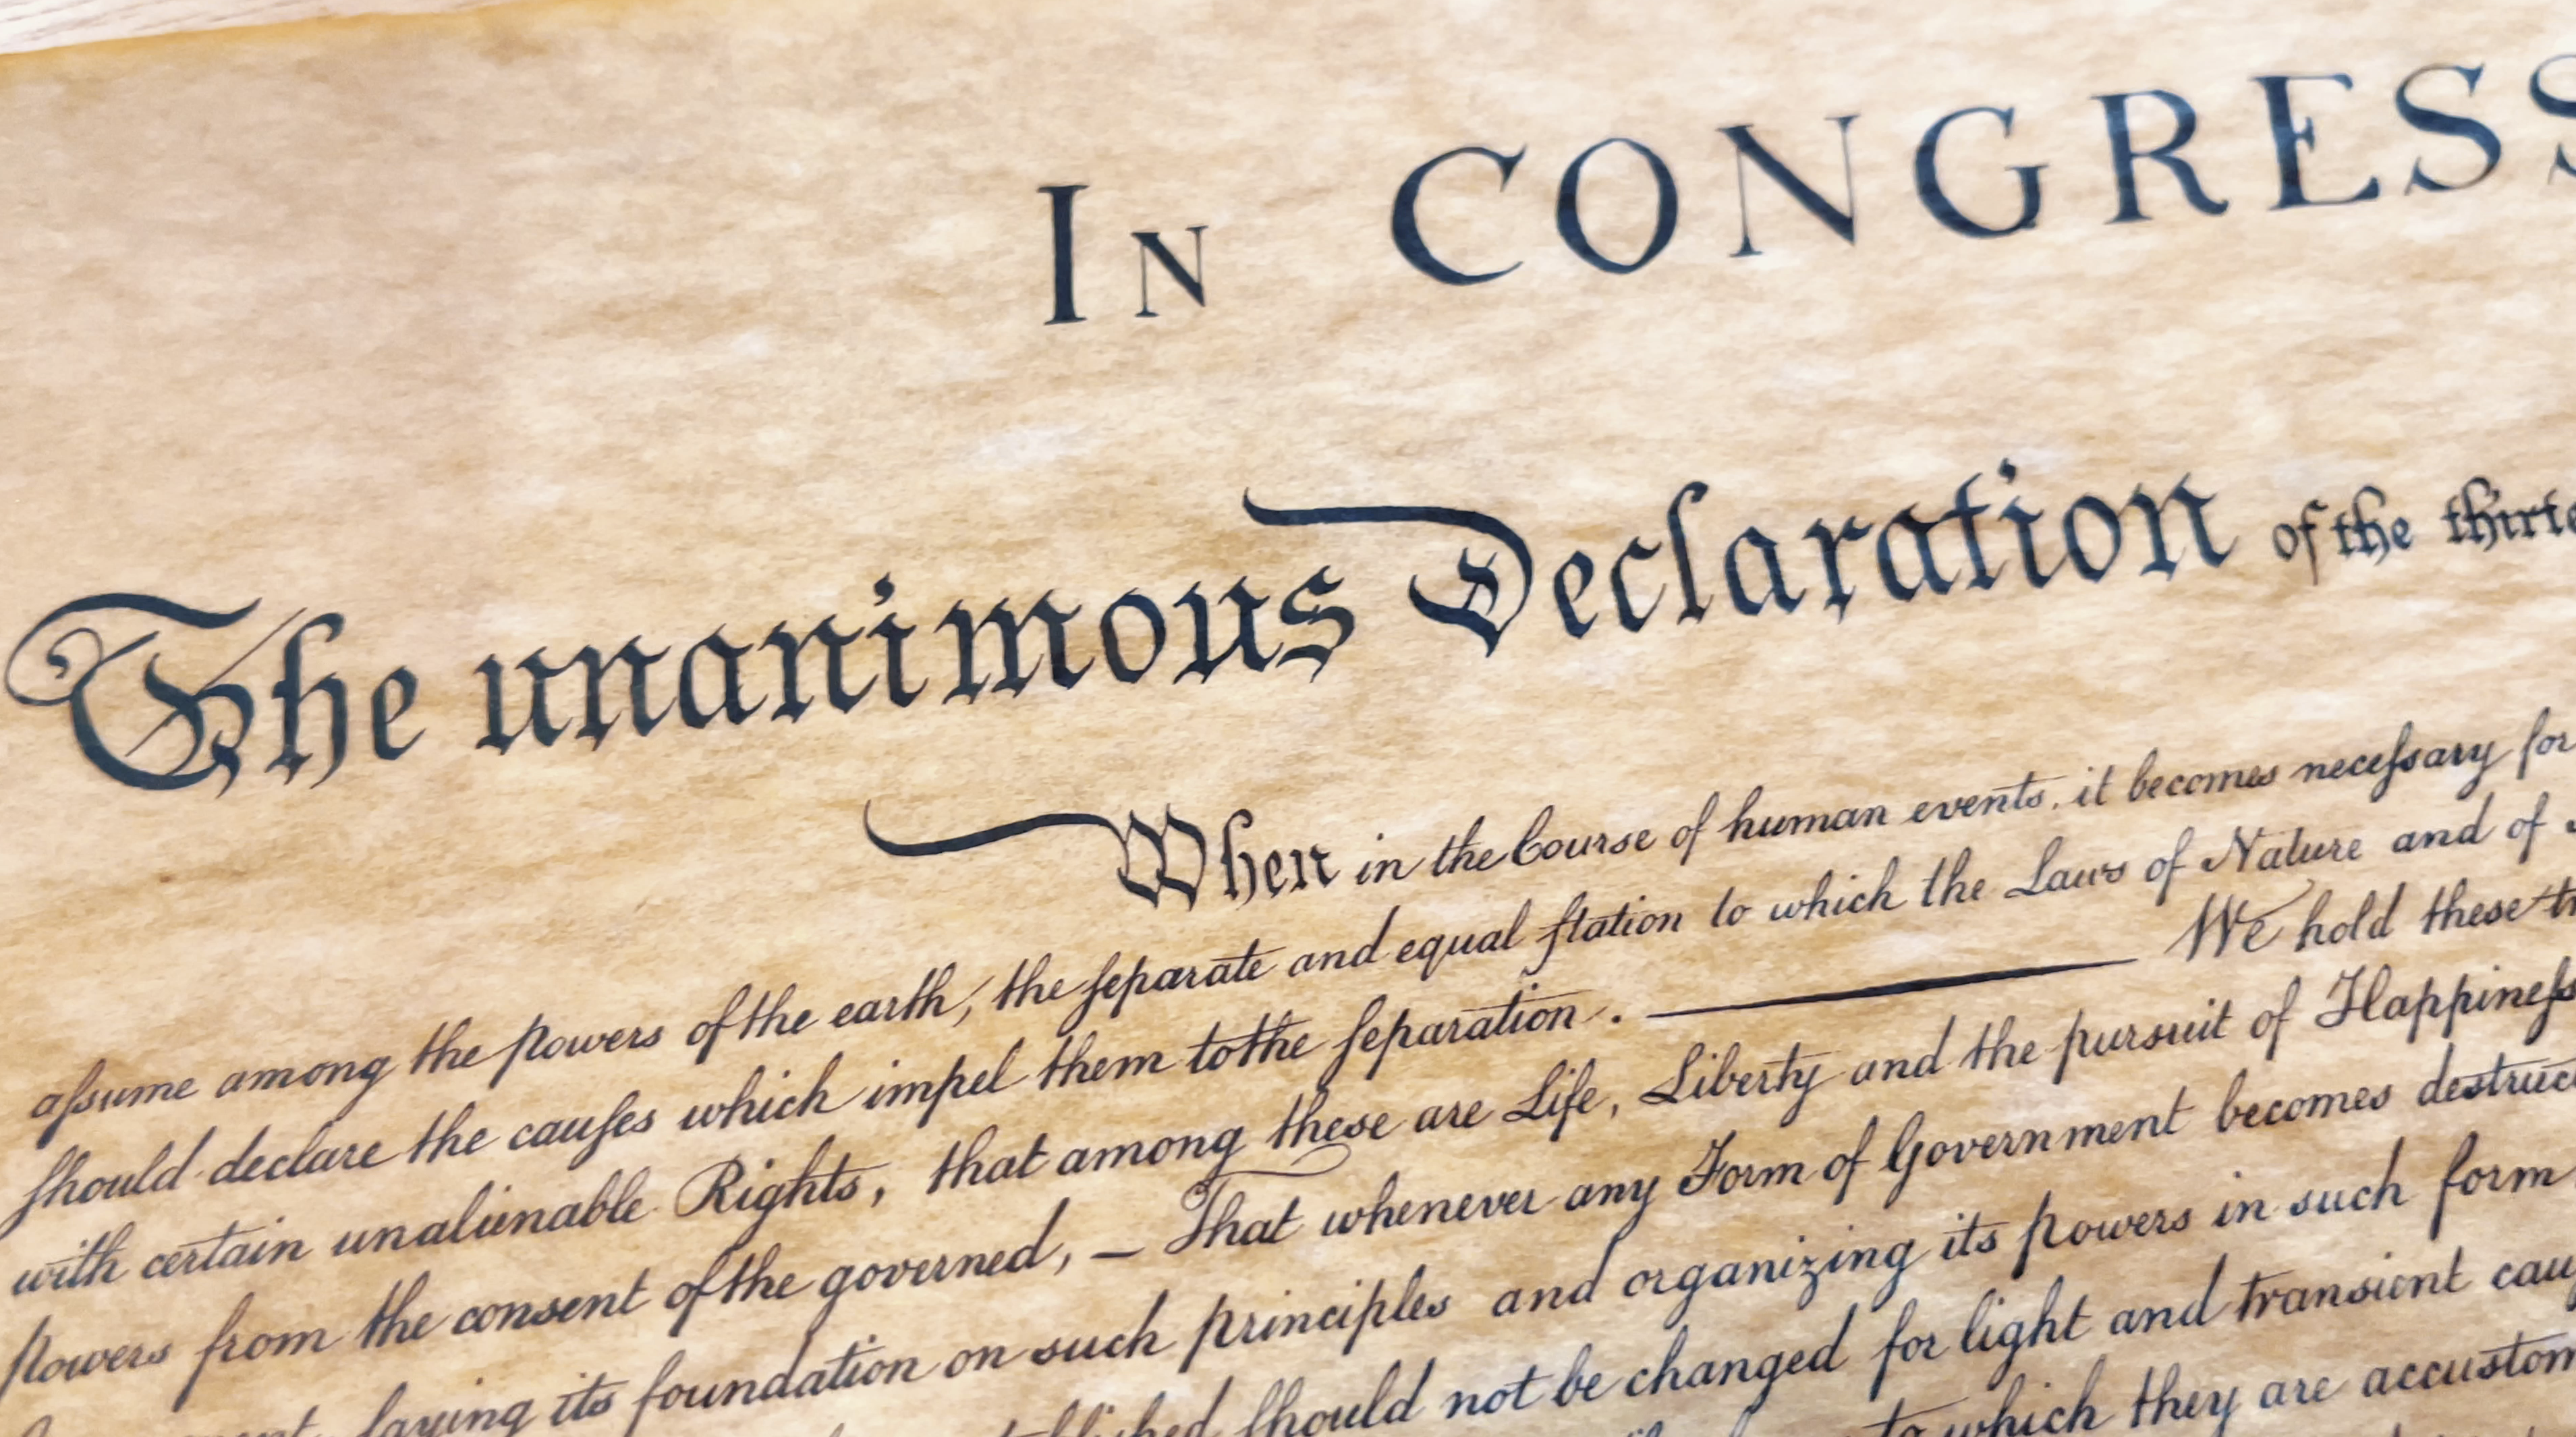 IN CONGRESS
The unanimous Declaration of the thirte
When in the Course of human events, it becomes neceſsary for
aſsume among the powers of the earth, the ſeparate and equal ſtation to which the Laws of Nature and of
ſhould declare the cauſes which impel them to the ſeparation. — We hold these tr
with certain unalienable Rights, that among these are Life, Liberty and the pursuit of Happineſs
powers from the consent of the governed, — That whenever any Form of Government becomes destruct
laying its foundation on such principles and organizing its powers in such form
ſhould not be changed for light and transient cau
to which they are accustom